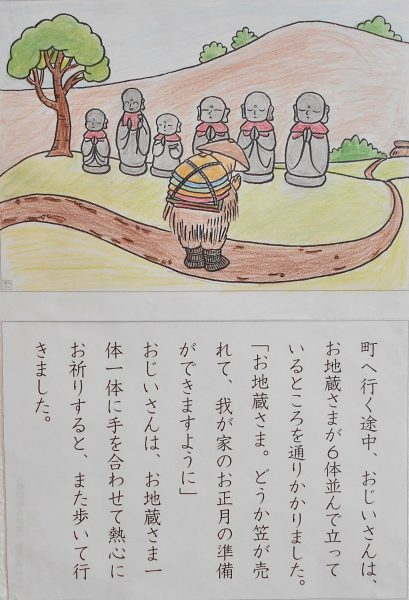 町へ行く途中、おじいさんは、
お地蔵さまが6体並んで立って
いるところを通りかかりました。
「お地蔵さま。どうか笠が売
れて、我が家のお正月の準備
ができますように」
おじいさんは、お地蔵さま一
体一体に手を合わせて熱心に
お祈りすると、また歩いて行
きました。